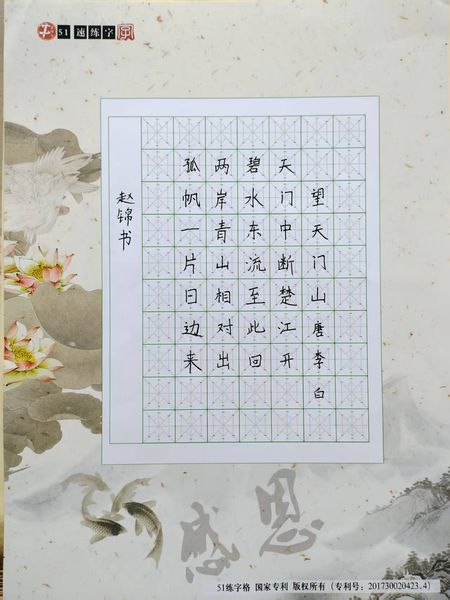 51速练字
望天门山 唐 李白
天门中断楚江开
碧水东流至此回
两岸青山相对出
孤帆一片日边来
赵锦书
感恩
51练字格 国家专利 版权所有(专利号:201730020423.4)